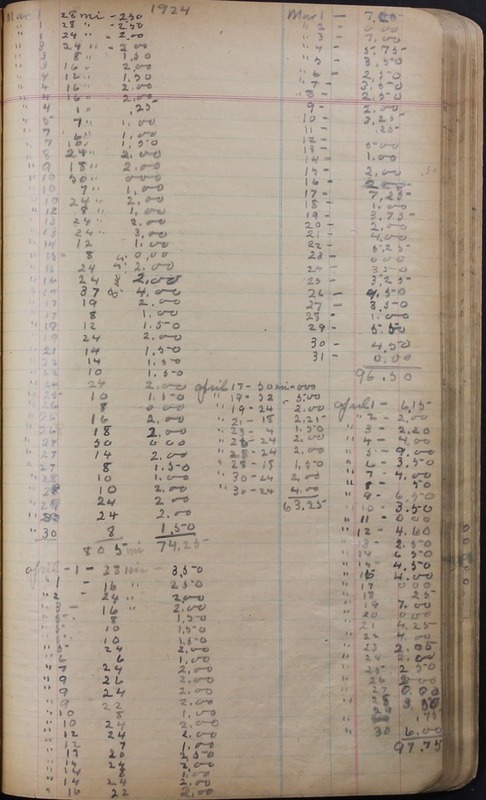 1924
Mar 1 28 mi - 2.50
1 28 " - 2.50
1 24 " - 2.00
3 24 " - 2.00
3 8 1.50
3 16 2.00
4 12 1.50
4 16 2.00
4 16 2.00
4 1 .25
5 7 1.00
7 6 1.00
7 10 1.50
8 24 2.00
9 18 2.00
10 30 0.00
10 7 1.00
10 24 2.00
12 8 1.00
13 24 2.00
13 24 3.00
14 12 1.00
15 8 0.00
24 2.00
24 2.00
37 4.00
17 19 2.00
17 8 1.00
18 12 1.50
19 24 2.00
21 14 1.50
14 1.50
10 1.50
24 2.00
10 1.50
8
16 2.00
18 2.00
27 30 0.00
27 14 2.00
27 8 1.50
28 10 1.00
28 10 2.00
24 2.00
24 2.00
30 8 1.50
805 mi 74.25
april - 1 - 28 mi - 3.50
1 - 16 " 2.50
2 - 24 " 2.00
3 - 16 " 2.00
8 1.50
10 1.50
10 1.50
24 2.00
6 1.00
7 24 2.00
9 26 2.00
9 24 2.00
9 22 2.00
10 8
10 24 2.00
12 24 2.00
12 7 1.00
13 20
14 24 2.00
14 8
14 24 2.00
16 22 2.00
april 17 - 30 mi - 000
19 - 32 5.00
19 - 24 2.00
21 - 18 2.25
23 - 4 1.50
28 - 24 2.00
28 - 24 2.00
28 - 18 1.50
30 - 24 2.00
30 - 24 4.00
63.25
Mar 1 - 7.50
2 0.00
3 - 7.00
4 - 5.75
5 - 3.50
6 - 2.50
7 - 3.50
8 - 2.50
9 - 2.00
10 - 3.25
11 - .25
12 - 5.00
13 - 1.00
14
15 - 2.00 .50
16 -
17 - 7.25
18 - 1.00
19 - 3.75
20 - 2.00
21 - 4.00
22 - 5.25
23 - 0.00
24 - 3.50
25 - 3.25
26 - 9.50
27 - 3.50
28 - 1.00
29 - 5.50
30 - 4.50
31 - 0.00
96.50
april 1 - 6.15
2 - 2.00
3 - 2.20
4 - 4.00
5 - 9.00
6 - 3.50
7 - 4.00
8 - 50
9 - 6.50
10 - 3.50
11 - 0.00
12 - 4.60
13 - 2.50
6.50
4.50
16 4.00
17 0.00
18 25
19 7.00
20 0.00
21 4.25
4.00
23 2.00
24 2.00
25 2.50
26 2.00
27 0.00
28 3.50
.75
30 6.00
97.75